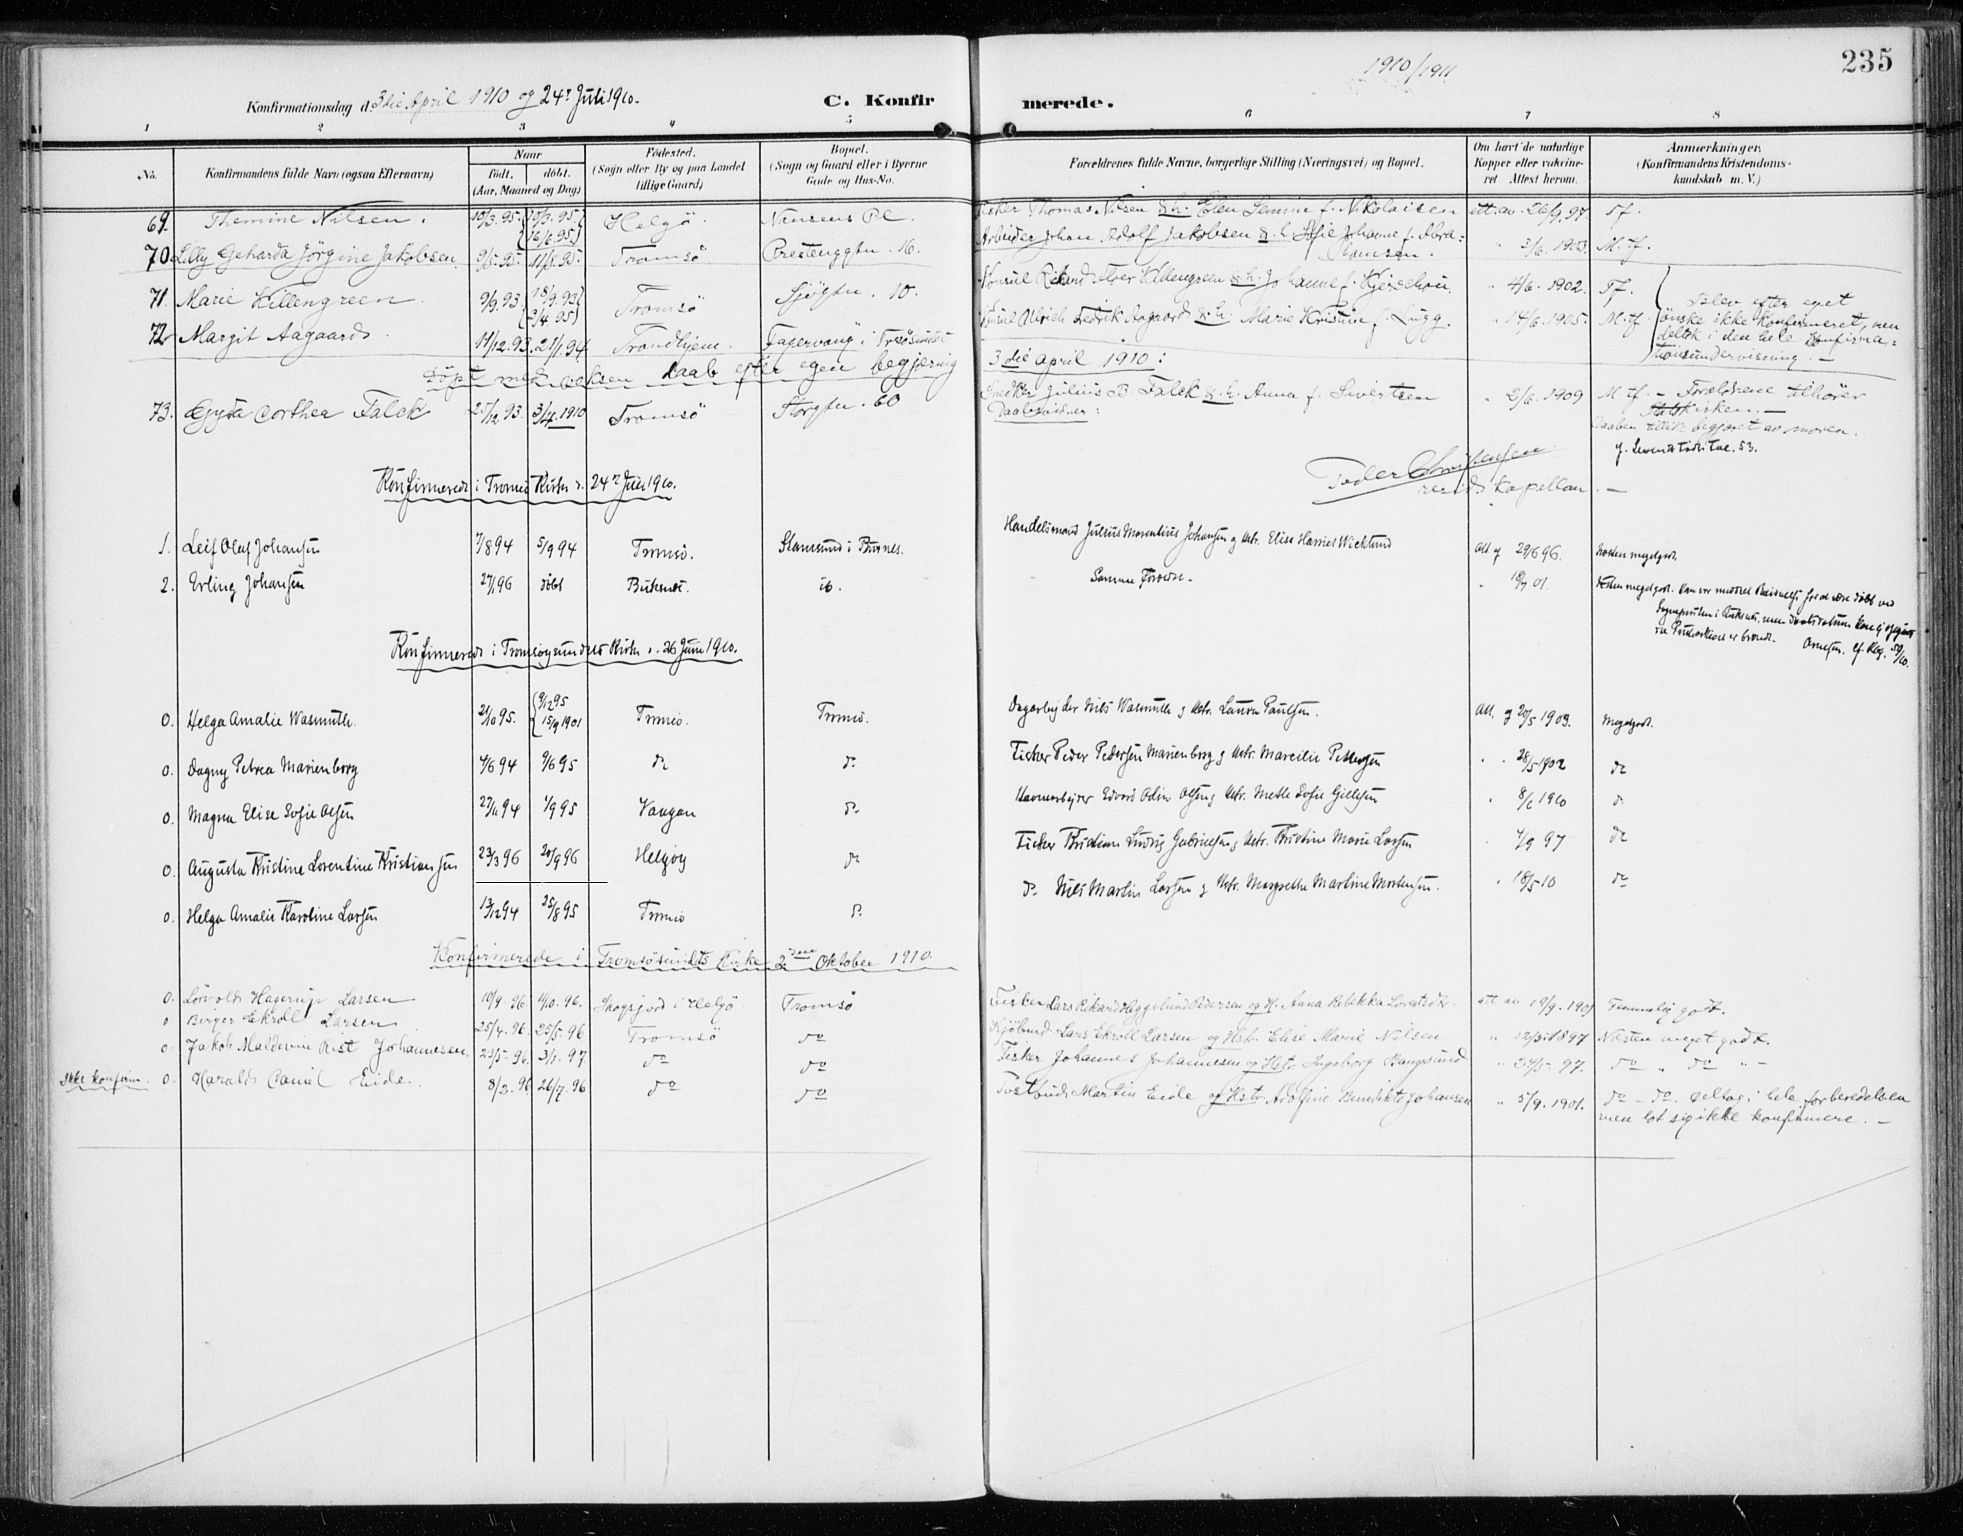 1910/1911
235
Konfirmationsdag d. 3die April 1910 og 24de Juli 1910.
C. Konfirmerede.
1 2 3 4 5 6 7 8
No.
Konfirmandens fulde Navn (ogsaa Efternavn)
Naar
født. døbt.
(Aar, Maaned og Dag)
Fødested.
(Sogn eller By og paa Landet
tillige Gaard)
Bopæl.
(Sogn og Gaard eller i Byerne
Gade og Hus-No.
Forældrenes fulde Navne, borgerlige Stilling (Næringsvei) og Bopæl.
Om havt de naturlige
Kopper eller vaccine-
ret Attest herom.
Anmærkninger.
(Konfirmandens Kristendoms-
kundskab m. V.)
69. Themine Nilsen. 10/3.95. 16/6.95 Helgö. Nansens Pl. Fisker Thomas Nilsen & h. Elen Semine f. Nikolaisen att. av 26/9.97. Tf.
70. Lilly Geharda Jörgine Jakobsen. 9/5.95. 11/8.95. Tromsö Prestenggtn. 16. Arbeider Johan Adolf Jakobsen & h. Sofie Johanne f. Abra-
hamsen. " 3/6.1903. M.tf.
71. Marie Killengreen. 9/9.93. 18/9.93 2/4.95 Tromsö Sjögtn. 10. Konsul Rikard Killengreen & h. Johanne f. Kjerschou. " 4/6.1902. Tf.
72. Margit Aagaard. 14/12.93. 21/1.94 Trondhjem. Fagervang i Trosöundet Konsul Ullrich Fedrik Aagaard & h. Marie Kristine f. Lugg. " 14/6.1905. M.tf.
Blev efter eget
ønske ikke konfirmeret, men
deltok i den hele konfirma-
tionsundervisning. —
Døpt med voksen daab efter egen begjæring 3die april 1910:
73. Gyda Dorthea Falck 25/12 93. 3/4.1910 Tromsö Storgtn. 60 Snedker Julius B. Falck & h. Anna f. Sivertsen " 2/6.1909 M.tf. – Forældrene tilhører
Daabsvidner: Statskirken. —
Daaben begjæret av moren.
Peder Christensen
resid. kapellan. —
Konfirmerede i Tromsø Kirke d. 24de Juli 1910.
1. Leif Olaf Johansen 7/8 94 5/9 94 Tromsö. Stamsund i Buxnes. Handelsmand Julius Morentius Johansen og Hstr. Elise Harriet Wicklund Att. af 29/6 96. Næsten megetgodt.
2. Erling Johansen 27/1 96 døbt Buksnes. ib. Samme Forældre. " 18/7 01. Næsten megetgodt.
Konfirmerede i Tromsøysundets Kirke d. 26 Juni 1910.
0. Helga Amalie Wasmuth. 21/10 95. 9/12 95 15/9 1901 Tromsö. Tromsö. Dagarbejder Nils Wasmuth og Hstr. Laura Paulsen. Att. af 20/5 1909. Megetgodt.
0. Dagny Petrea Marienborg 4/6 94 9/6 95 do do Fisker Peder Pedersen Marienborg og Hstr. Marcilie Pettersen " " 28/5 1902 do
0. Magna Elise Sofie Olsen 27/11 94 1/9 95 Vaagan do Havnearbejder Edvard Odin Olsen og Hstr. Mette Sofie Gillesen " 8/6 1910 do
0. Augusta Kristine Lorentine Kristiansen 23/3 96 20/9 96 Helgöy do Fisker Kristian Ludvig Gabrielsen og Hstr. Kristine Marie Larsen " 4/9 97 do
0. Helga Amalie Karoline Larsen 13/12 94 25/8 95 Tromsö do do Nils Martin Larsen og Hstr. Margrethe Martine Mortensen. " 18/5 10 do
Konfirmerede i Tromsösundets Kirke 2den Oktober 1910.
0. Hagerup Larsen 10/9.96. 4/10.96. Skogsfjord i Helgö. Tromsö Fisker Lars Rikard Heggelund Pedersen og H. Anna Rebekka att. av 19/9.1901 Temmelig godt.
0 Birger Ekroll Larsen 25/4.96. 25/5.96 Tromsö do Lars Ekroll Larsen og Hst. Elise Marie Nilsen 1897 Næsten meget godt.
0. Jakob Maldevin Rist Johannesen. 23/5.96. 3/1.97. do do Fisker Johannes Johannesen og Hstr. Ingeborg Bangsund " 24/5.97. do " do " –
Ikke konfirm. 0. Harald Daniel Eide. 8/2.96 26/7.96 do do Postbud Martin Eide og Hstr. Adolfine Benedikte Johansen " 5/9.1901. do – do. Deltog i hele forberedelsen
men lot sig ikke konfirmere. —